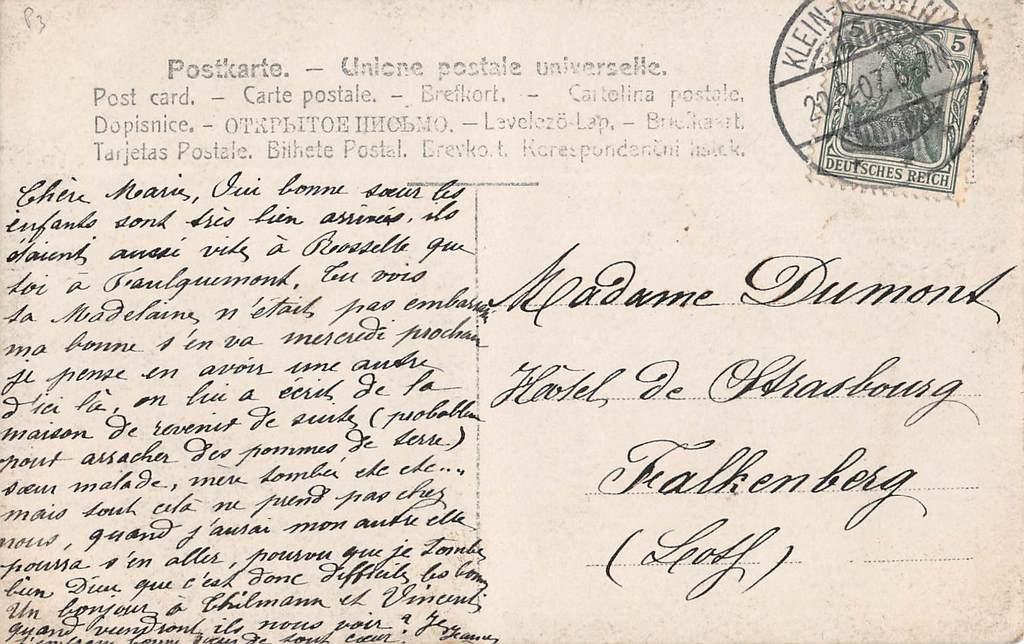 P3
Postkarte. – Unione postale universelle.
Post card. – Carte postale. – Brefkort. – Cartolina postale.
Dopisnice. – ОТКРЫТОЕ ПИСЬМО. – Levelező-Lap. – Briefkaart.
Tarjetas Postale. Bilhete Postal. Brevkort. Korespondenční listek.
KLEIN-ROSSELN
5 5
DEUTSCHES REICH
Chère Marie, Oui bonne sœur les
enfants sont très bien arrivés, ils
étaient aussi vite à Rosselle que
toi à Faulquemont, Tu vois
ta Madelaine n'était pas embarra
ma bonne s'en va mercredi prochain
je pense en avoir une autre
d'ici là, on lui a écrit de la
maison de revenir de suite (probablem
pour arracher des pommes de terre)
sœur malade, mère tombée etc etc....
mais tout cela ne prend pas chez
nous, quand j'aurai mon autre elle
pourra s'en aller, pourvu que je tombe
bien Dieu que c'est donc difficile les
Un bonjour à Thilmann et Vincent
quand viendront ils nous voir? Je
t'embrasse bonne sœur de tout cœur. Jeanne
Madame Dumont
Hôtel de Strasbourg
Falkenberg
(Loth)